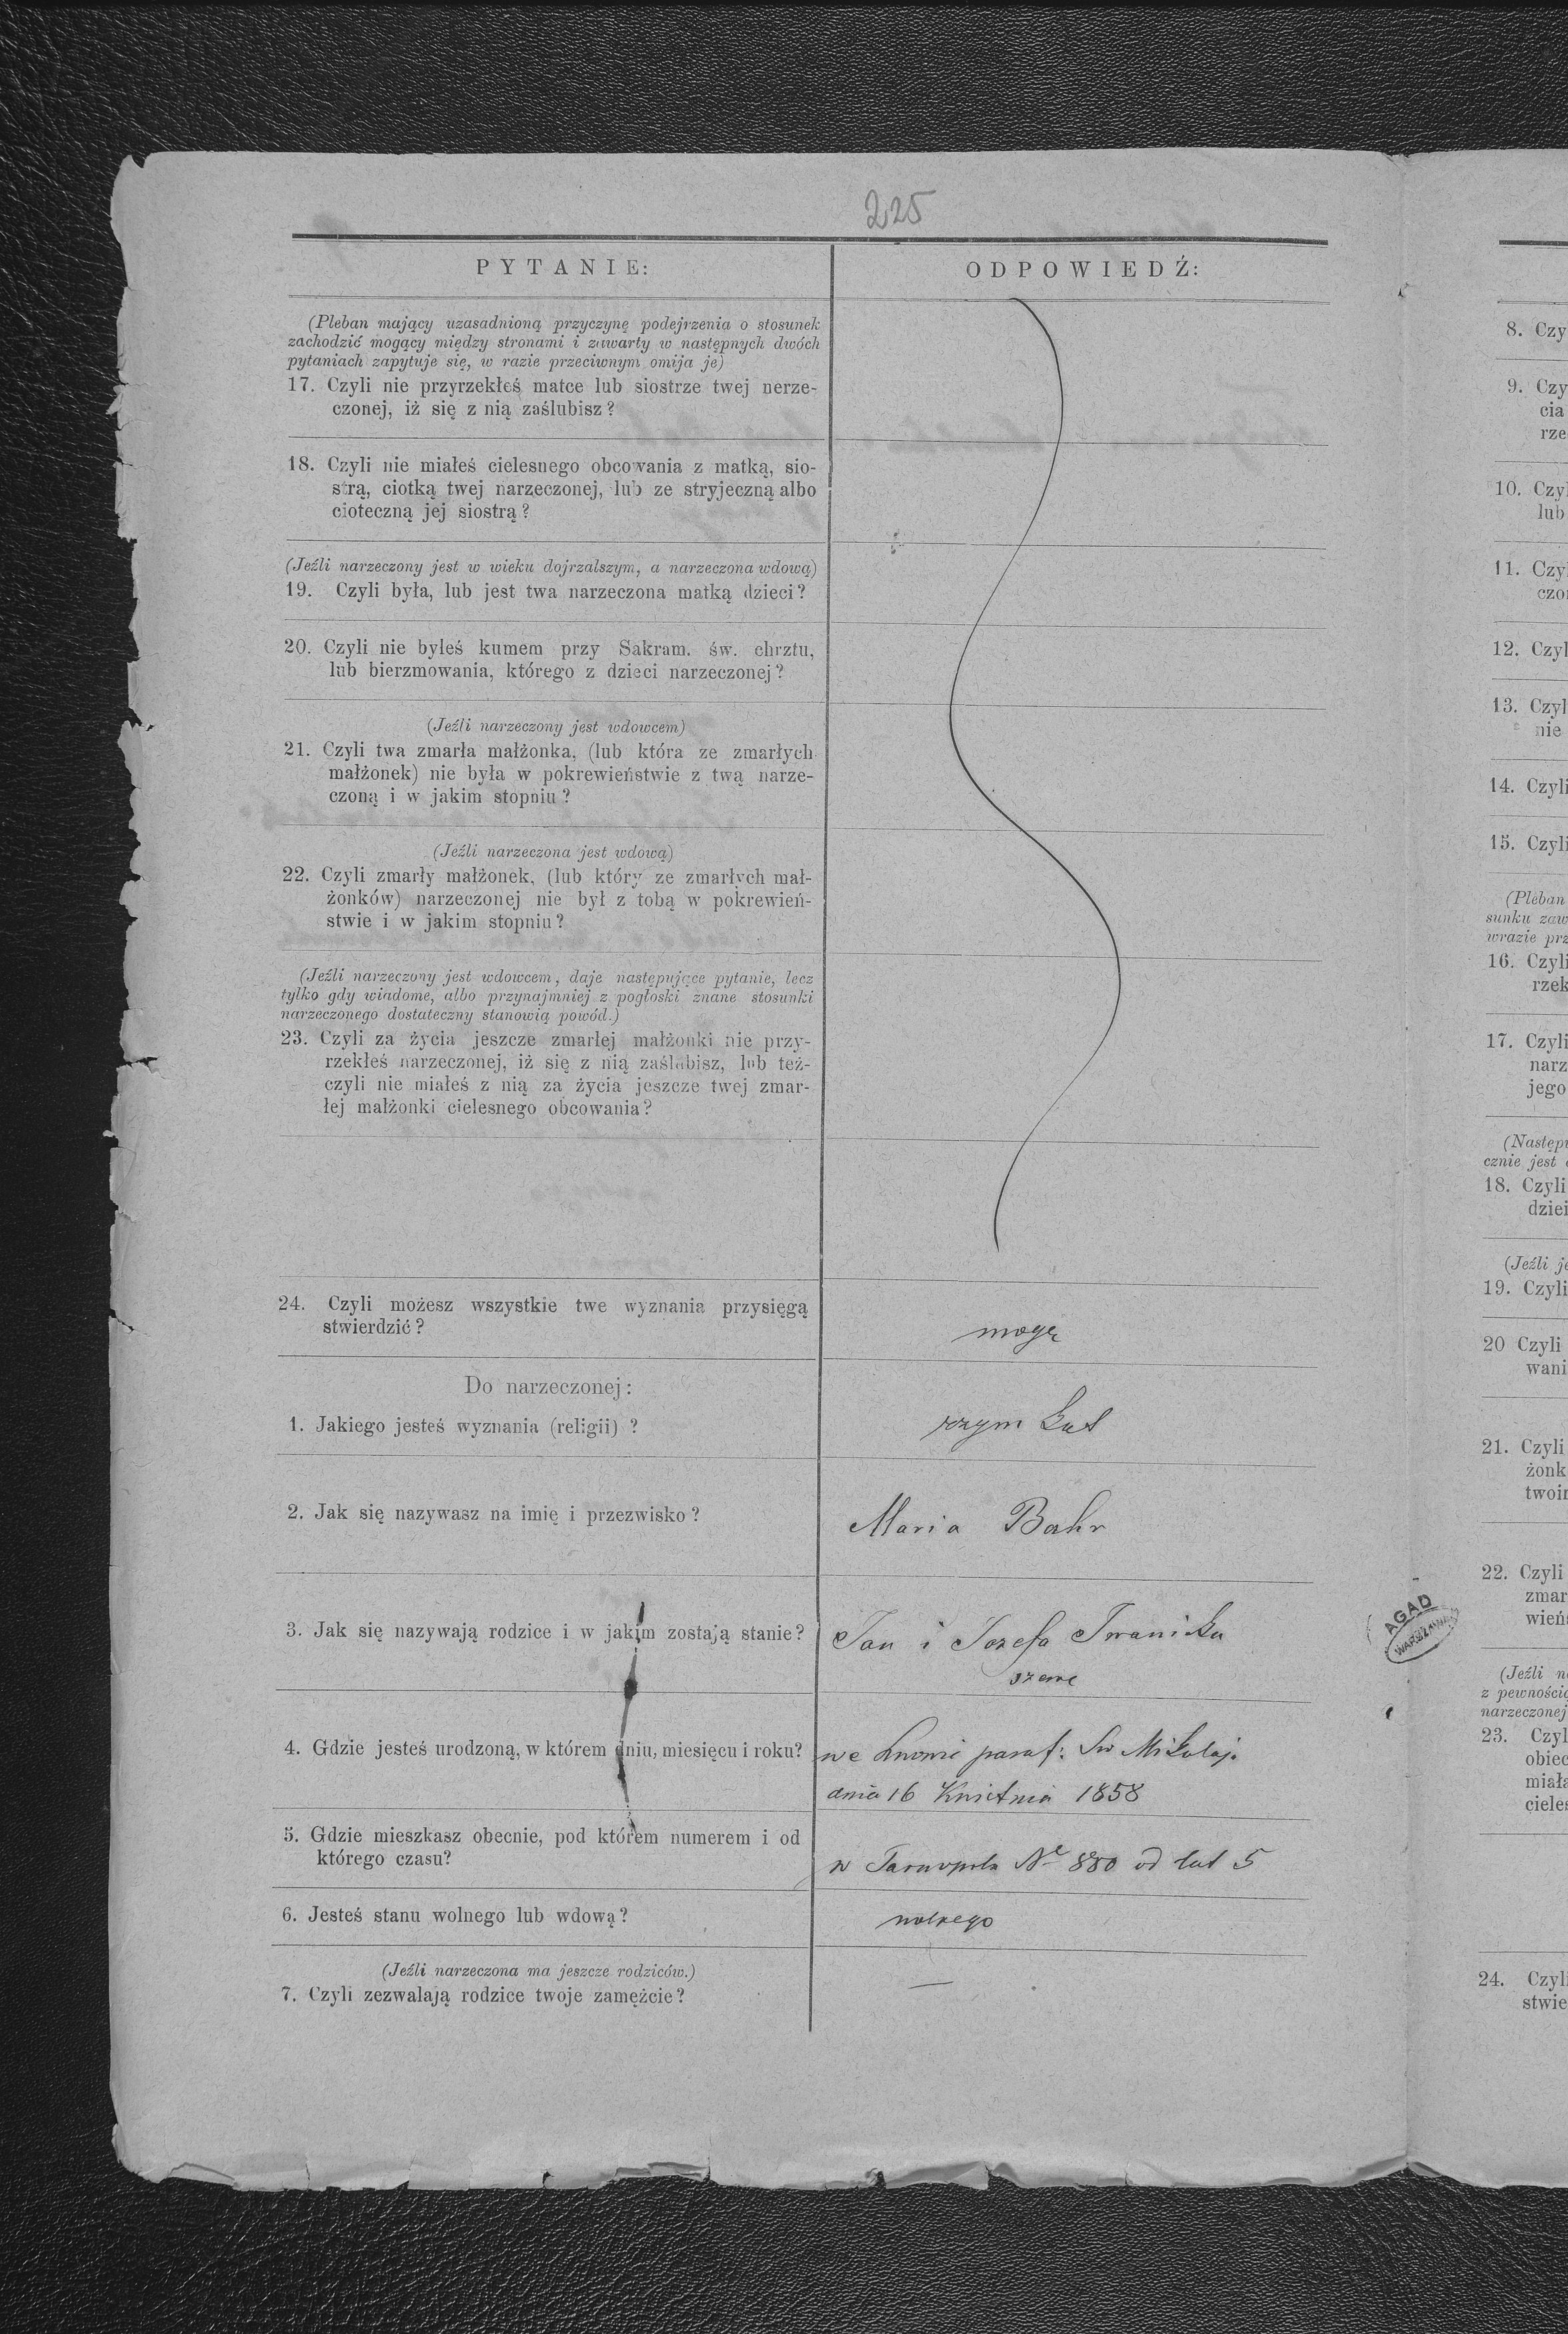 225
PYTANIE:
ODPOWIEDŹ:
(Pleban mający uzasadnioną przyczynę podejrzenia o stosunek
zachodzić mogący między stronami i zawarty w następnych dwóch
pytaniach zapytuje się, w razie przeciwnym omija je)
17. Czyli nie przyrzekłeś matce lub siostrze twej nerze-
czonej, iż się z nią zaślubisz?
18. Czyli nie miałeś cielesnego obcowania z matką, sio-
strą, ciotką twej narzeczonej, lub ze stryjeczną albo
cioteczną jej siostrą?
(Jeźli narzeczony jest w wieku dojrzalszym, a narzeczona wdową)
19. Czyli była, lub jest twa narzeczona matką dzieci?
20. Czyli nie byłeś kumem przy Sakram. św. chrztu,
lub bierzmowania, którego z dzieci narzeczonej?
(Jeźli narzeczony jest wdowcem)
21. Czyli twa zmarła małżonka, (lub która ze zmarłych
małżonek) nie była w pokrewieństwie z twą narze-
czoną i w jakim stopniu?
(Jeźli narzeczona jest wdową)
22. Czyli zmarły małżonek, (lub który ze zmarłych mał-
żonków) narzeczonej nie był z tobą w pokrewień-
stwie i w jakim stopniu?
(Jeźli narzeczony jest wdowcem, daje następujące pytanie, lecz
tylko gdy wiadome, albo przynajmniej z pogłoski znane stosunki
narzeczonego dostateczny stanowią powód.)
23. Czyli za życia jeszcze zmarłej małżonki nie przy-
rzekłeś narzeczonej, iż się z nią zaślubisz, lub też
czyli nie miałeś z nią za życia jeszcze twej zmar-
łej małżonki cielesnego obcowania?
24. Czyli możesz wszystkie twe wyznania przysięgą
stwierdzić?
mogę
Do narzeczonej:
1. Jakiego jesteś wyznania (religii) ?
rzym kat
2. Jak się nazywasz na imię i przezwisko?
Maria Bahr
3. Jak się nazywają rodzice i w jakim zostają stanie?
Jan i Jozefa Iwanicka
4. Gdzie jesteś urodzoną, w którem dniu, miesięcu i roku?
we Lwowie paraf: Sw Mikołaja
dnia 16 Kwietnia 1858
5. Gdzie mieszkasz obecnie, pod którem numerem i od
którego czasu?
w Tarnopolu No 880 od lat 5
6. Jesteś stanu wolnego lub wdową?
wolnego
(Jeźli narzeczona ma jeszcze rodziców.)
7. Czyli zezwalają rodzice twoje zamężcie?
—
AGAD
WARSZAWA
8. Czy
9. Czy
cia
rze
10. Czyl
lub
11. Czy
czo
12. Czyl
13. Czyl
nie
14. Czyli
15. Czyli
(Pleban
sunku zaw
wrazie prz
16. Czyli
rzek
17. Czyli
narz
jego
(Następ
cznie jest
18. Czyli
dziei
(Jeźli je
19. Czyli
20 Czyli
wani
21. Czyli
żonk
twoir
22. Czyli
zmar
wień
(Jeźli n
z pewnością
narzeczonej
23. Czyl
obiec
miała
cieles
24. Czyli
stwie